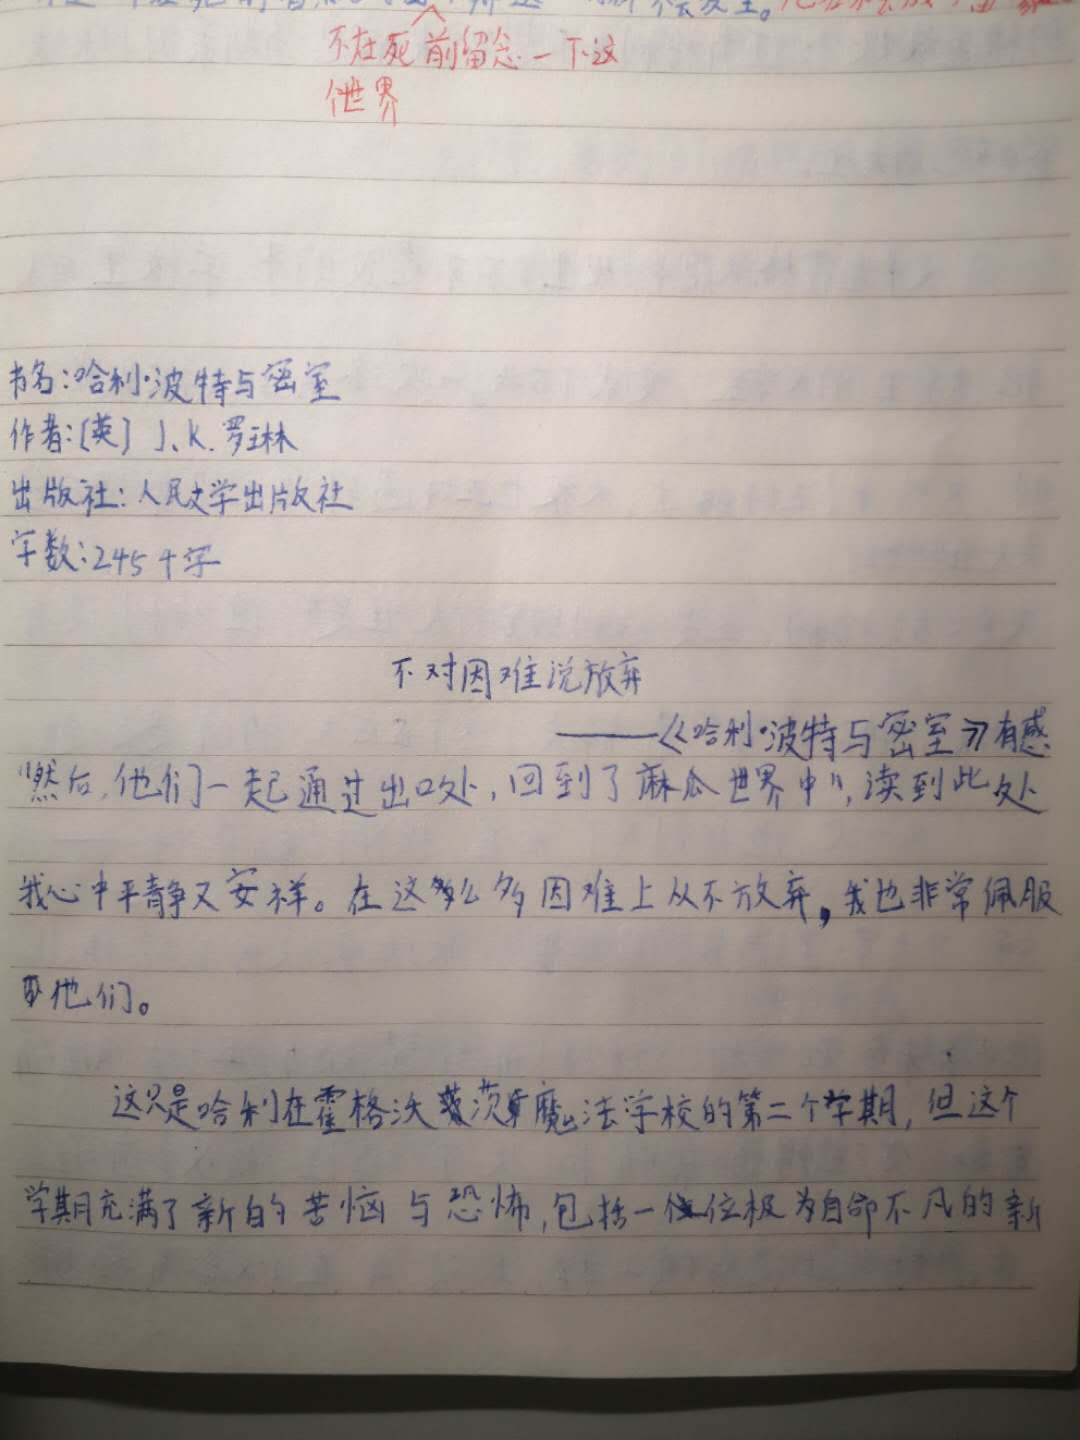 不在死前留念一下这
个世界
书名:哈利·波特与密室
作者:[英] J.K.罗琳
出版社:人民文学出版社
字数:245千字
不对困难说放弃
——《哈利·波特与密室》有感
"然后,他们一起通过出口处,回到了麻瓜世界中",读到此处
我心中平静又安祥。在这么多困难上从不放弃,我也非常佩服
他们。
这只是哈利在霍格沃茨魔法学校的第二个学期,但这个
学期充满了新的苦恼与恐怖,包括一位极为自命不凡的新